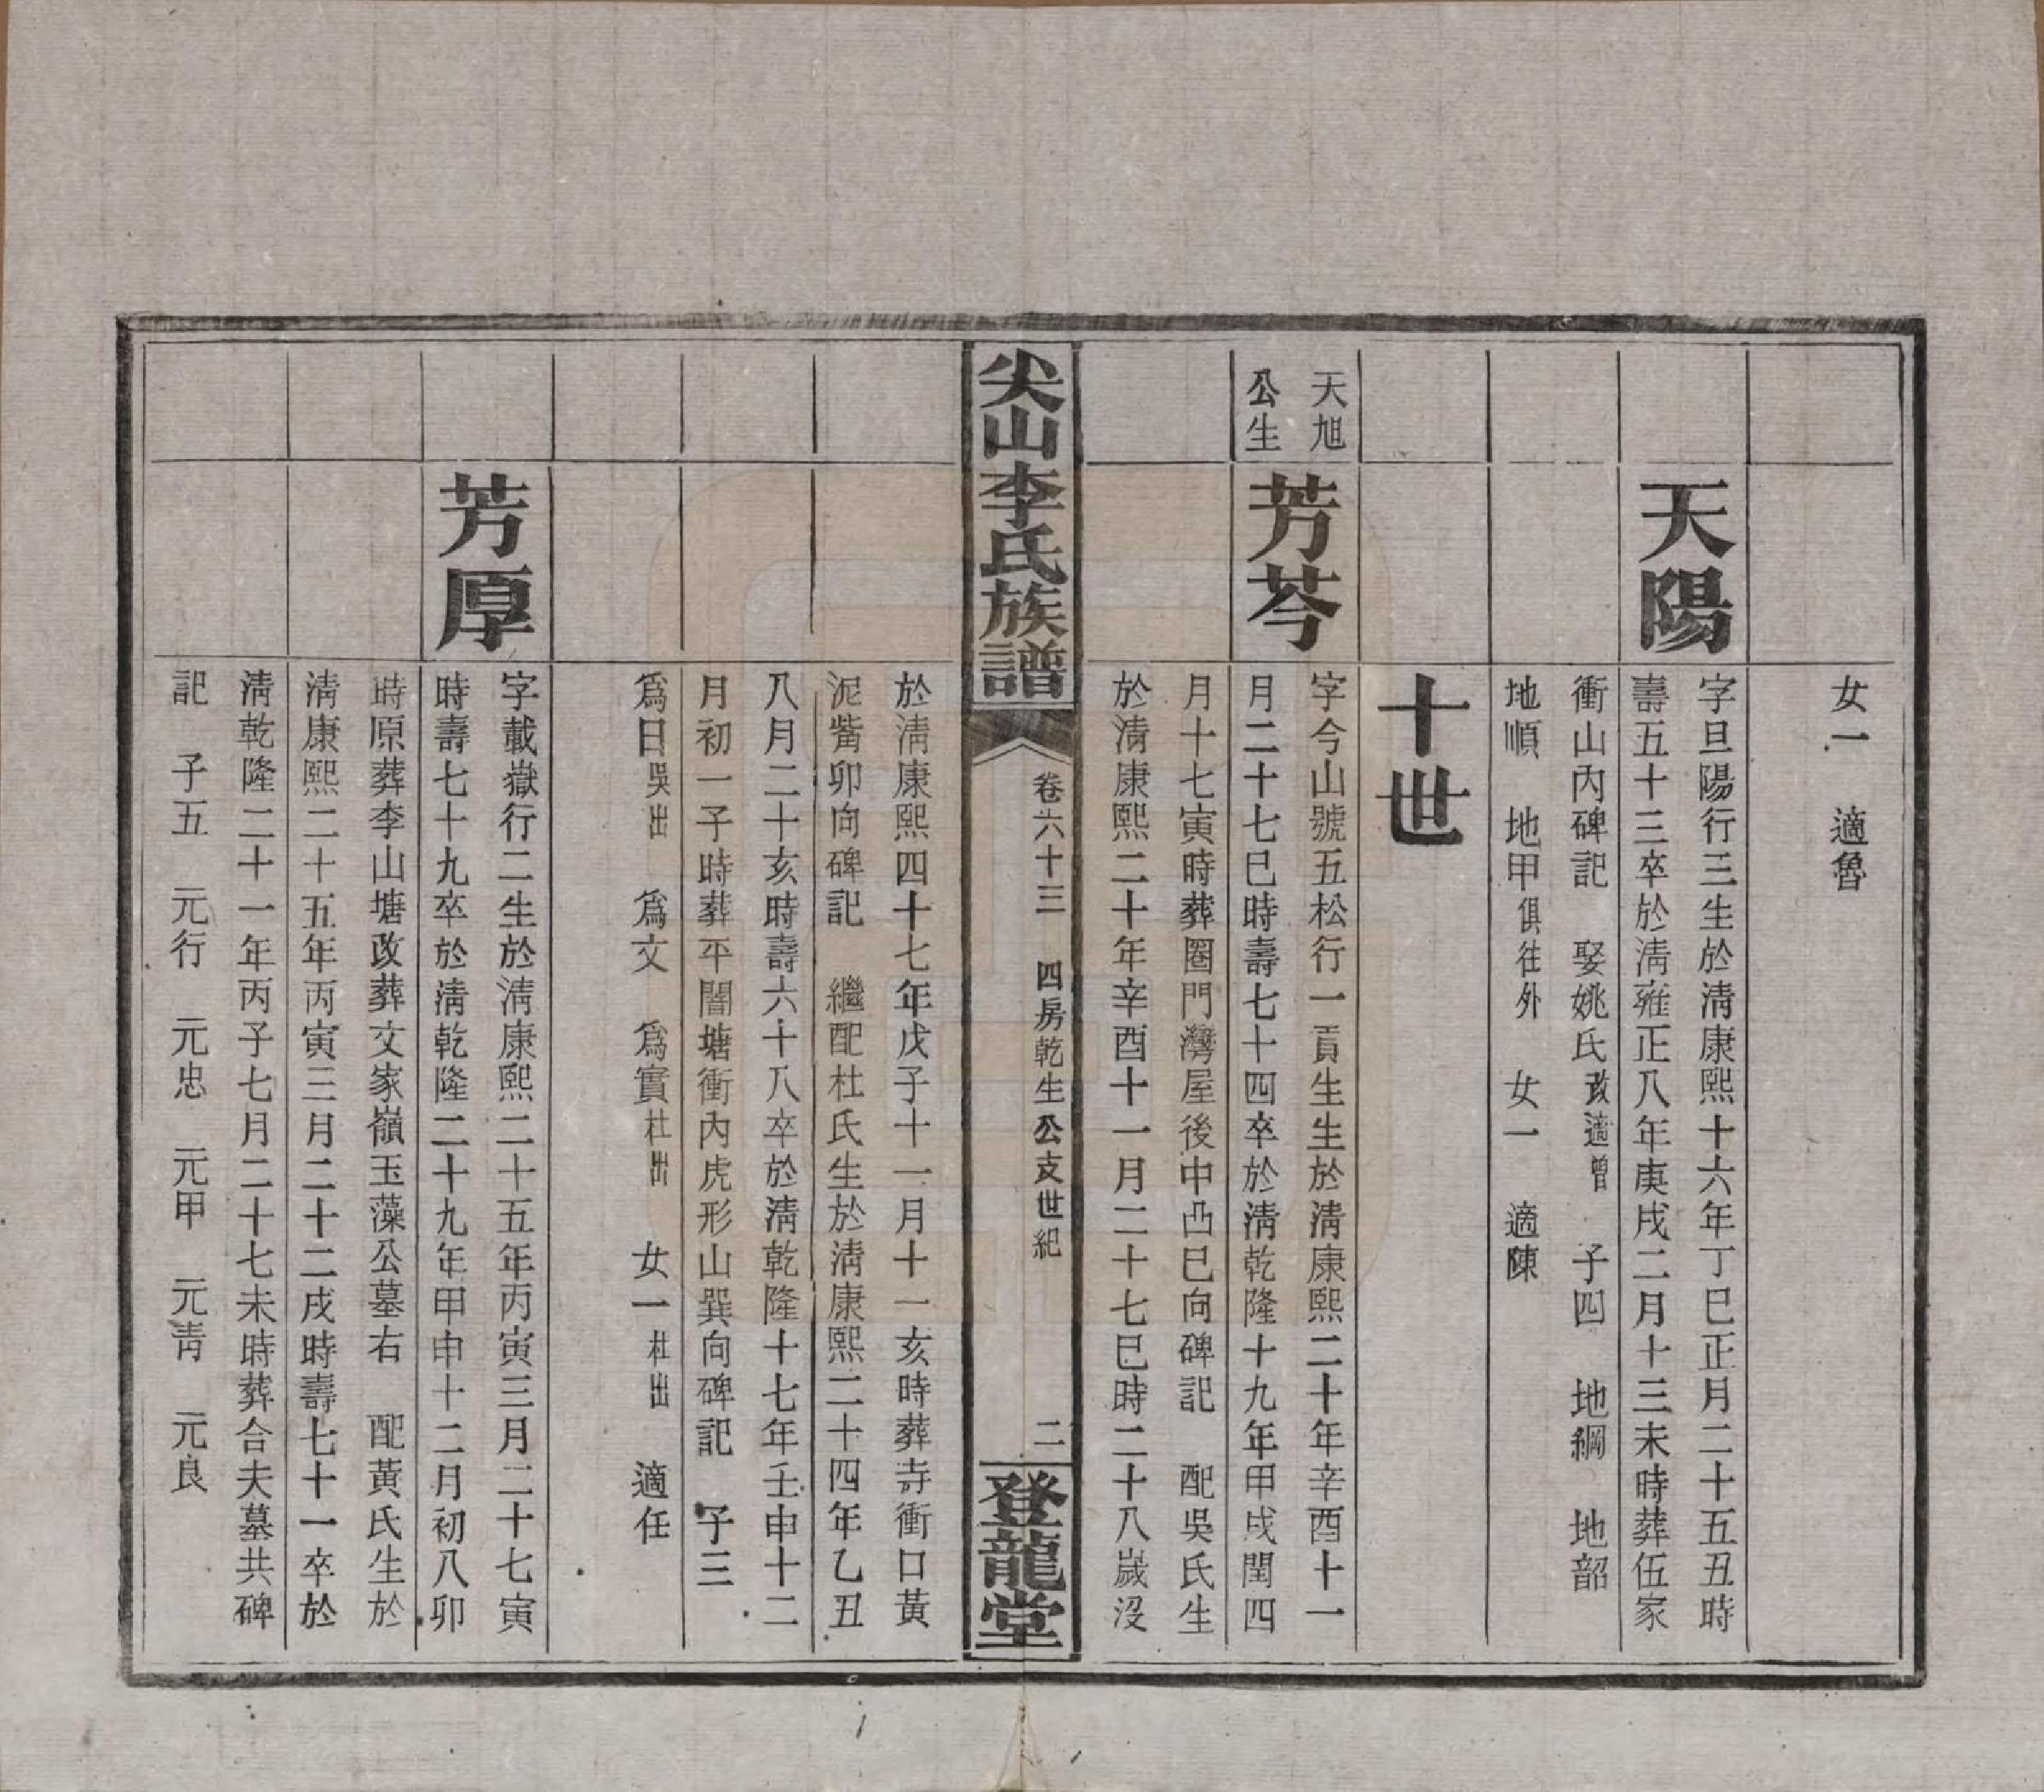 女一　適魯
天陽
字旦陽行三生於淸康熙十六年丁巳正月二十五丑時
壽五十三卒於淸雍正八年庚戌二月十三未時葬伍家
衝山內碑記　娶姚氏改適曾　子四　地綱　地韶
地順　地甲俱往外　女一　適陳
十世
天旭
公生
芳芩
字今山號五松行一貢生生於淸康熙二十年辛酉十一
月二十七巳時壽七十四卒於淸乾隆十九年甲戌閏四
月十七寅時葬圈門灣屋後中凸巳向碑記　配吳氏生
於淸康熙二十年辛酉十一月二十七巳時二十八歲沒
尖山李氏族譜
卷六十三　四房乾生公支世紀
二
登龍堂
於淸康熙四十七年戊子十一月十一亥時葬寺衝口黃
泥嘴卯向碑記　繼配杜氏生於淸康熙二十四年乙丑
八月二十亥時壽六十八卒於淸乾隆十七年壬申十二
月初一子時葬平閣塘衝內虎形山巽向碑記　子三
爲日吳出　爲文　爲實杜出　女一杜出　適任
芳厚
字載嶽行二生於淸康熙二十五年丙寅三月二十七寅
時壽七十九卒於淸乾隆二十九年甲申十二月初八卯
時原葬李山塘改葬文家嶺玉藻公墓右　配黃氏生於
淸康熙二十五年丙寅三月二十二戌時壽七十一卒於
淸乾隆二十一年丙子七月二十七未時葬合夫墓共碑
記　子五　元行　元忠　元甲　元靑　元良